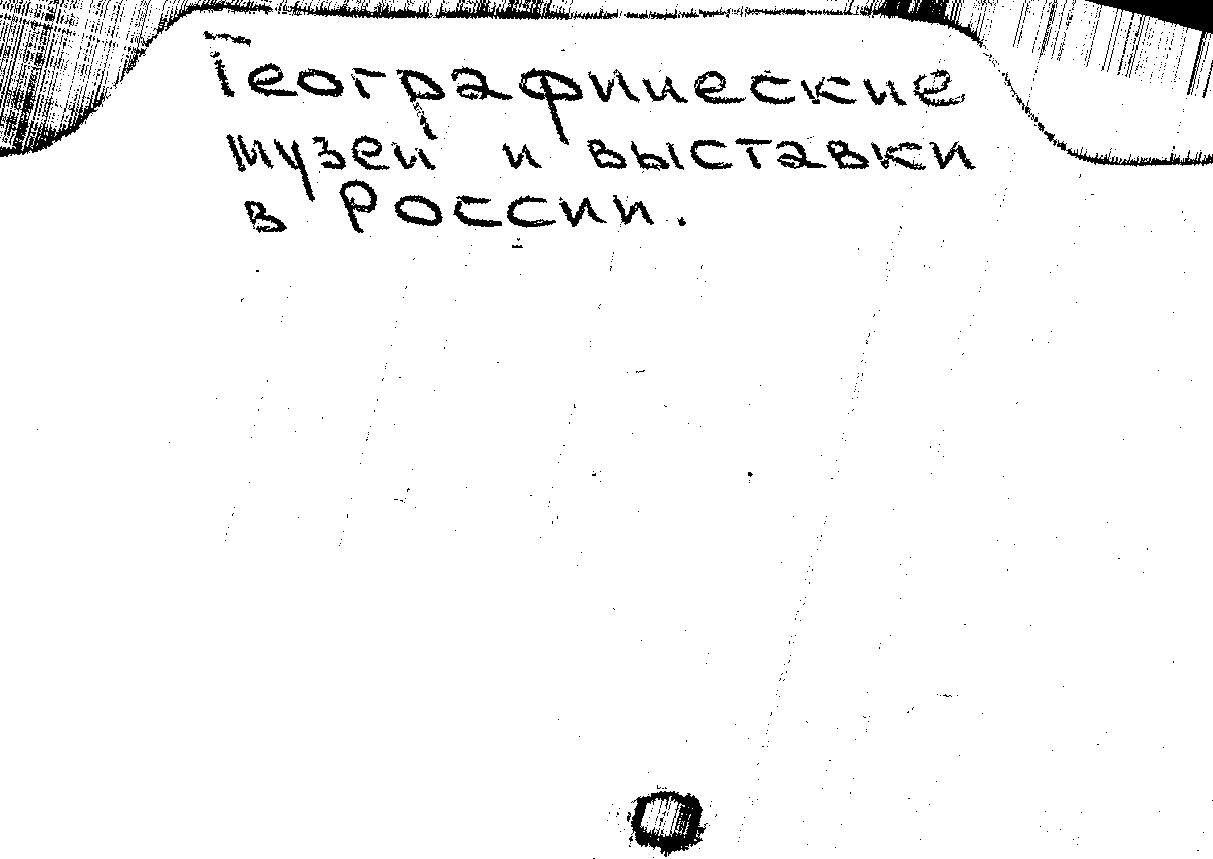 Географические
музеи и выставки
в России.